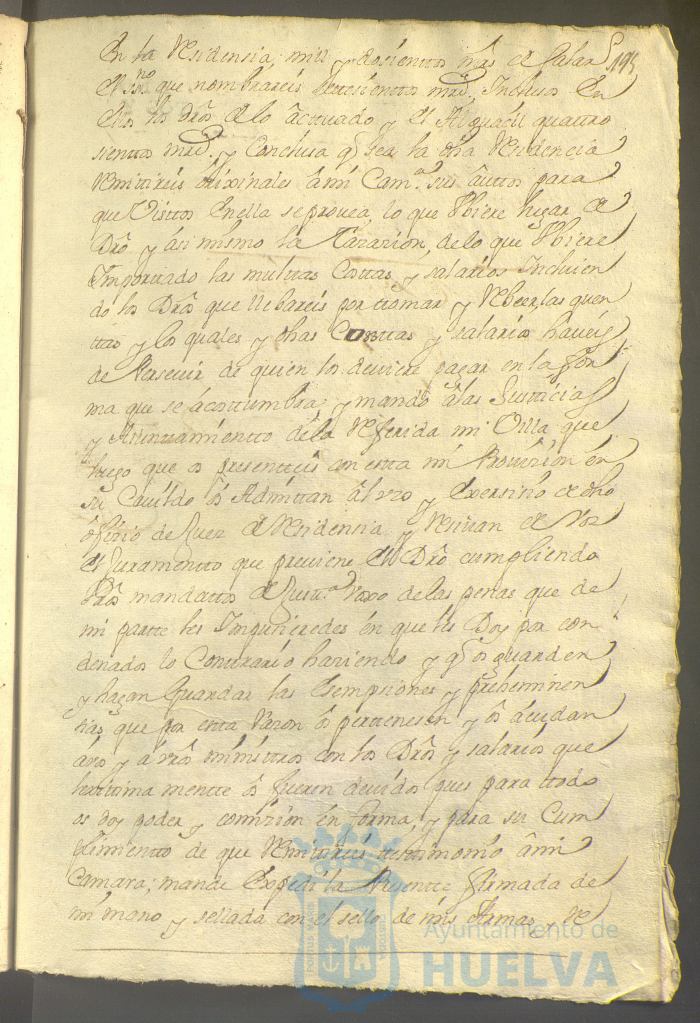 En la Residensia, mill y dosientos mrs de salar 195
el ssno que nombrareis seissientos mrs. Inclusos En
ellos los dros de lo actuado y el Alguacil quattro
sientos mrs. y Conclusa q sea la dha Residencia
Remitireis orixinales a mi Cama sus autos para
que Visttos En ella se provea, lo que Ubiere lugar de
Dro y asi mismo la Razon, de lo que Ubiere
Importado las multas Costas y salarios Incluien
do los Dros que llebareis por tomar y Reber las quen
ttas y los quales y dhas Costtas y salario haveis
de Perseuir de quien los deviere pagar en la for
ma que se acostumbra; y mando a las Justicias
y Aiuntamientto de la Referida mi Villa que
luego que os presenteis con estta mi Provizion en
su Cavildo os Admittan al uso y exersisio de dho
ofisio de Juez de Residensia y Resivan de Vos
el Juramentto que previene el Dro cumpliendo
vros mandattos de Justa vaxo de las penas que de
mi partte les Impusieredes en que les Doy por con
denados lo Conttrario haziendo y q os guarden
y hagan Guardar las Esempsiones y preheminen
sias que por esta Razon os pertenesen y os acudan
a vos y a vros ministtros con los Dros y salarios que
lexittima mentte os fueren devidos que para ttodo
os doy poder y comizion en forma, y para su Cum
plimientto de que Remitireis testtimonio a mi
Camara; mande Expedir la Presentte firmada de
mi mano y sellada con el sello de mis Armas, y Re
Ayuntamiento de
HUELVA